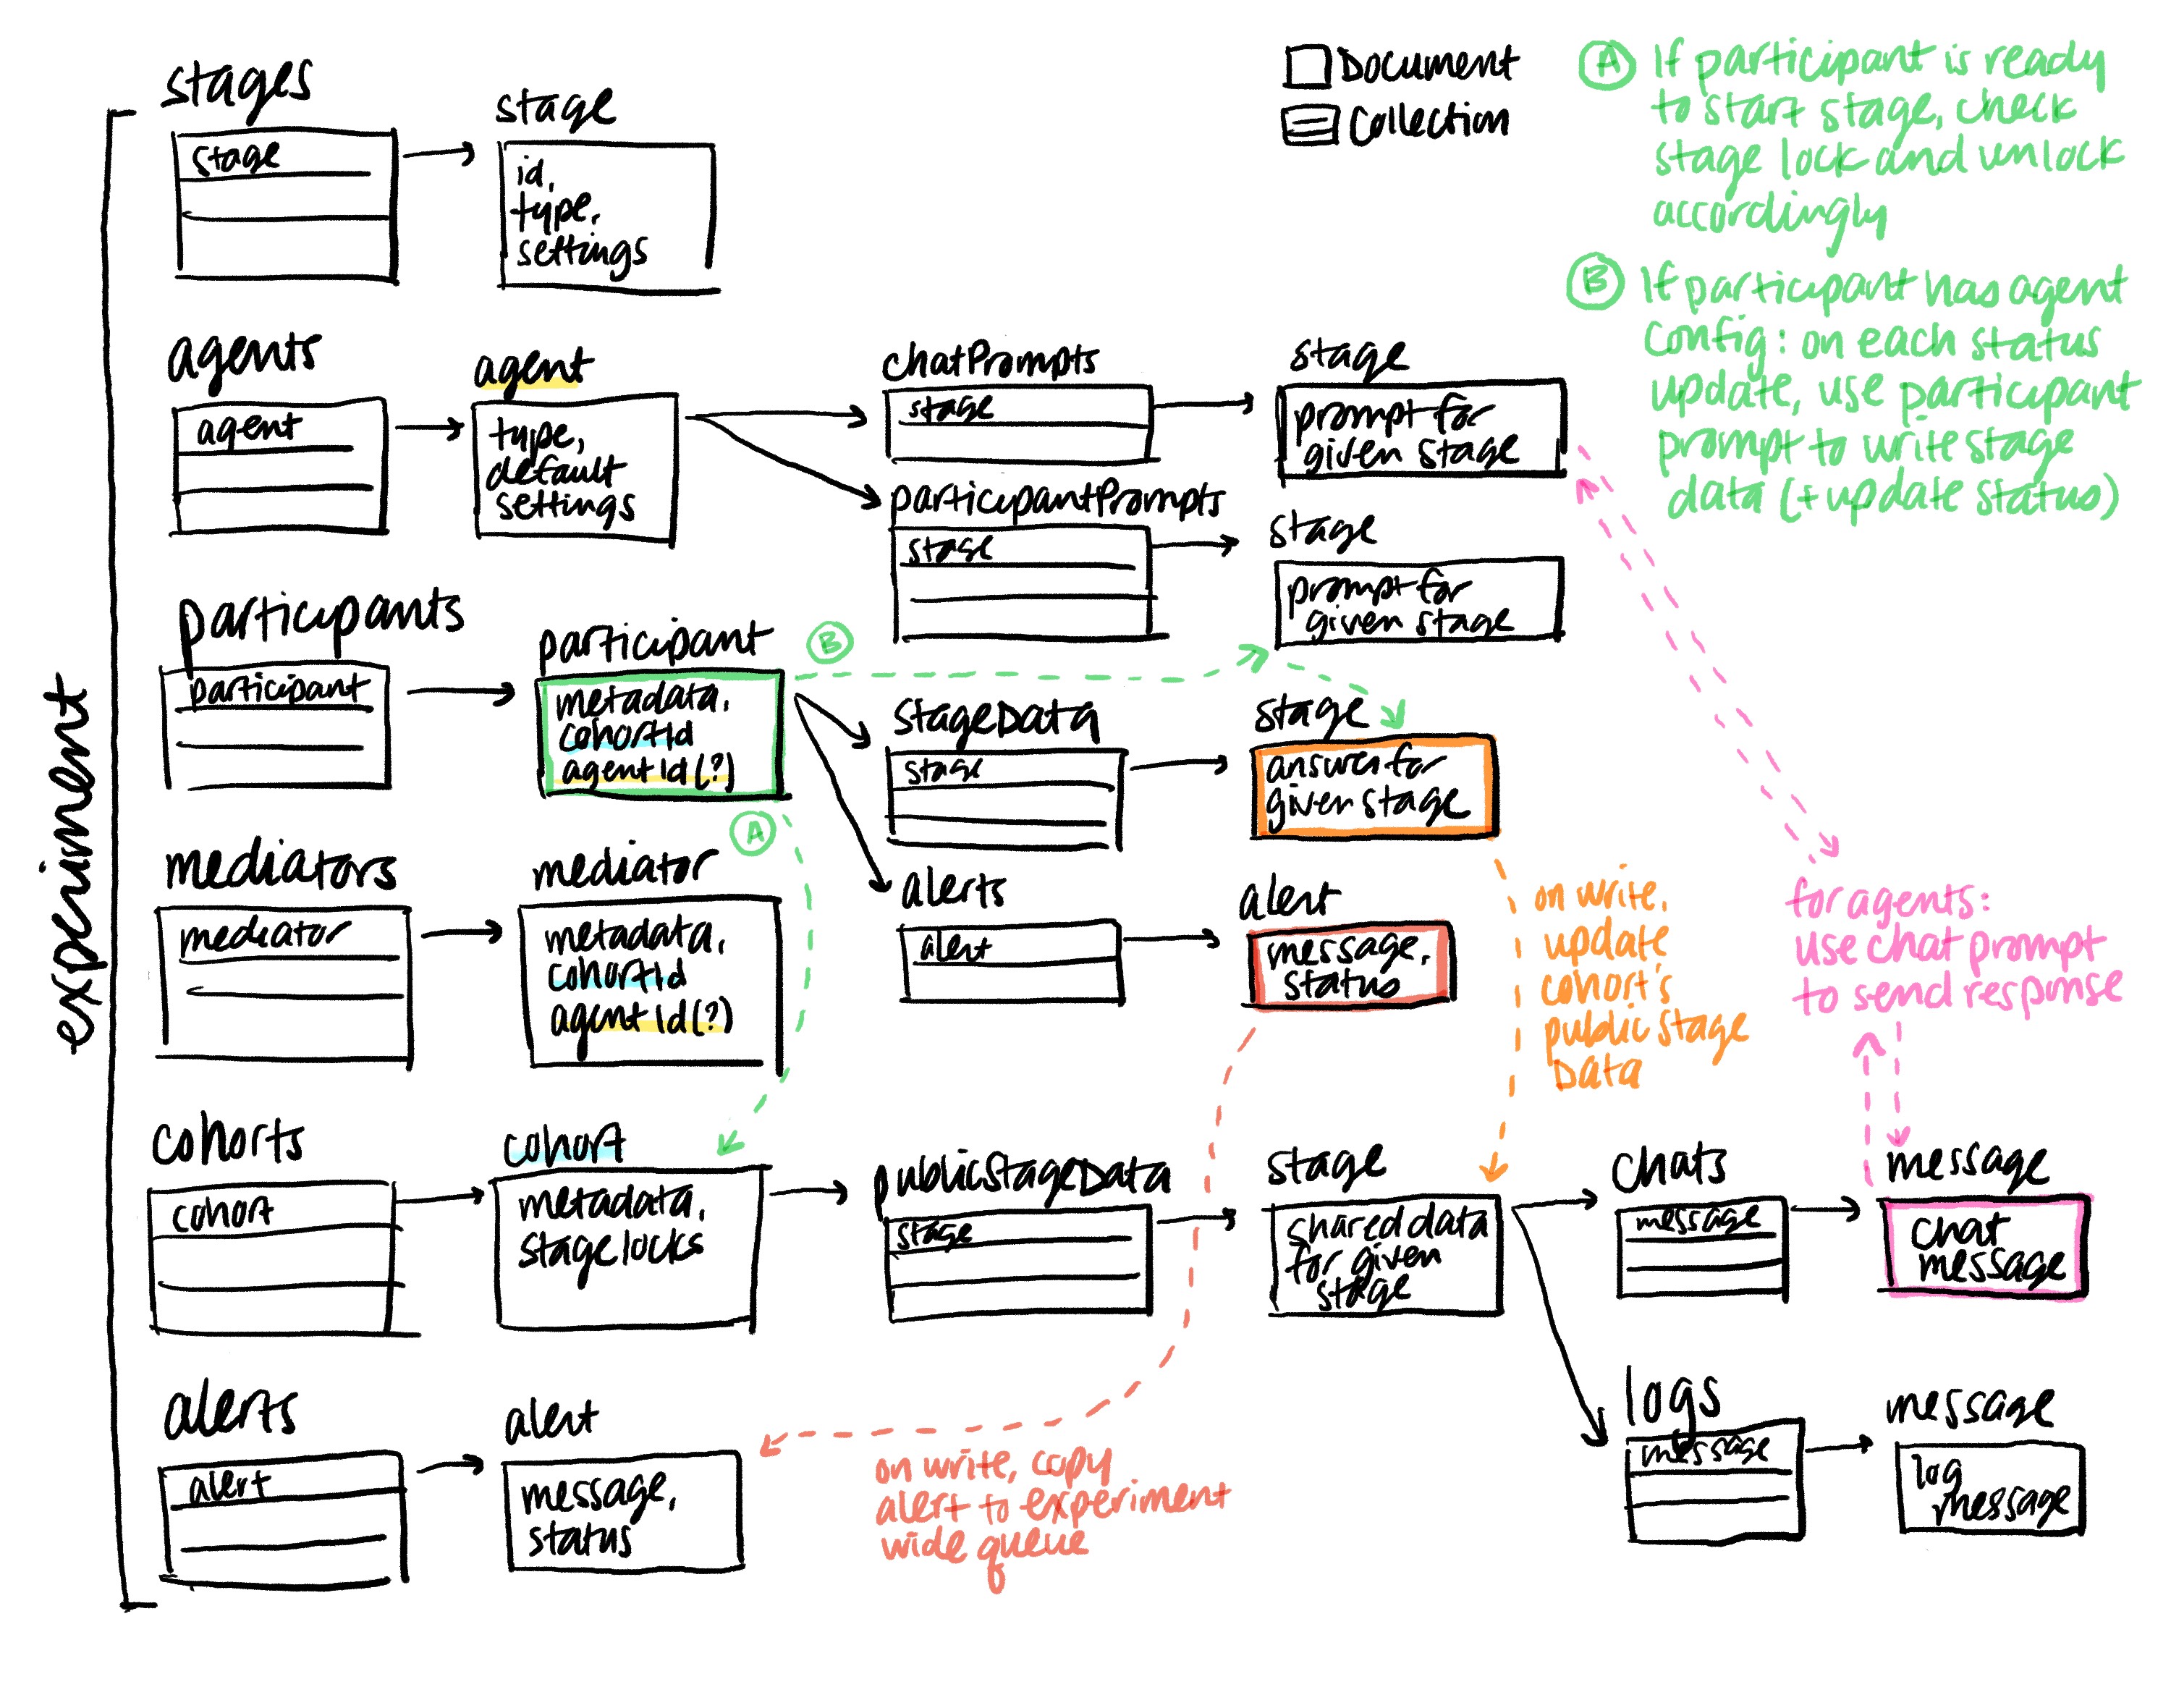 experiment
Document
Collection
stages
stage
stage
id,
type,
settings
agents
agent
agent
type,
default
settings
chatPrompts
stage
stage
prompt for
given stage
participantPrompts
stage
stage
prompt for
given stage
participants
participant
participant
metadata,
cohortId
agentId(?)
B
A
stageData
stage
stage
answer for
given stage
alerts
alert
alert
message,
status
mediators
mediator
mediator
metadata,
cohortId
agentId(?)
cohorts
cohort
cohort
metadata,
stage locks
publicStageData
stage
stage
shared data
for given
stage
chats
message
message
chat
message
logs
message
message
log
message
alerts
alert
alert
message,
status
A If participant is ready
to start stage, check
stage lock and unlock
accordingly
B If participant has agent
config: on each status
update, use participant
prompt to write stage
data (+ update status)
on write,
update
cohort's
public stage
Data
for agents:
use chat prompt
to send response
on write, copy
alert to experiment
wide queue